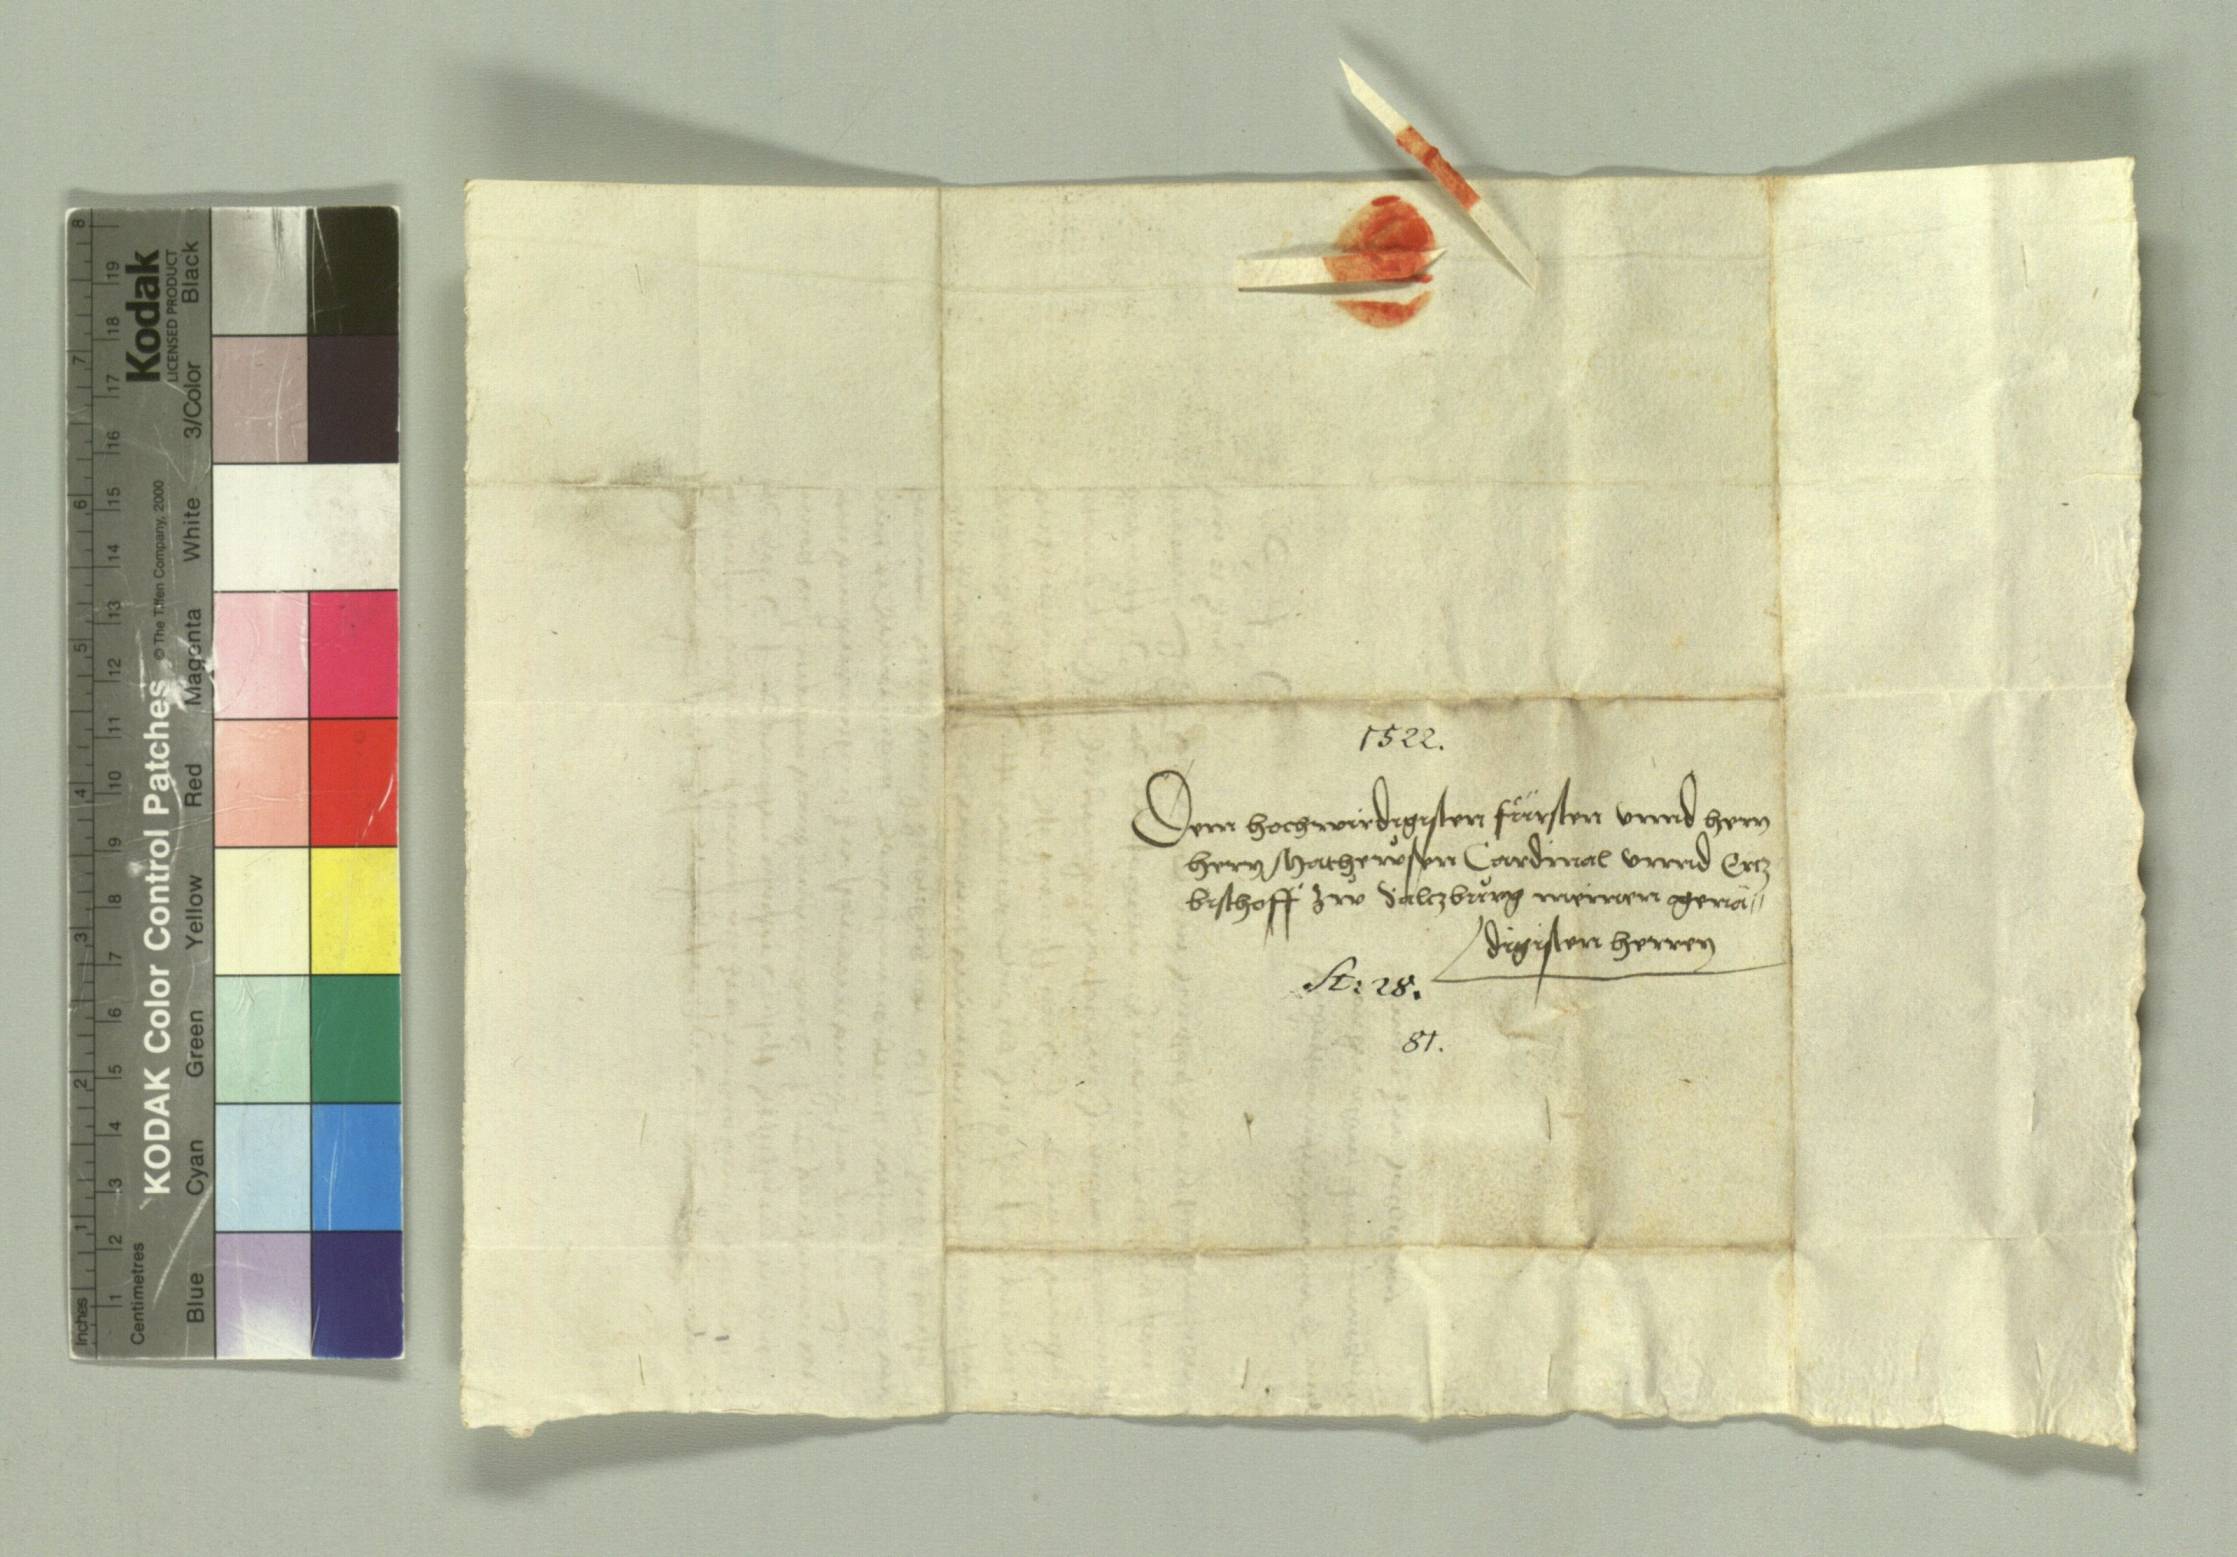 1522.
Dem hochwirdigisten fürsten unnd hern
hern Matheusen Cardinal unnd Ertz
bischoff zw Saltzburg meinem genä//
digisten herren
St: 28.
81.
Kodak
LICENSED PRODUCT
KODAK Color Control Patches
© The Tiffen Company, 2000
Black
3/Color
White
Magenta
Red
Yellow
Green
Cyan
Blue
Inches
Centimetres
8
7
6
5
4
3
2
1
19
18
17
16
15
14
13
12
11
10
9
8
7
6
5
4
3
2
1